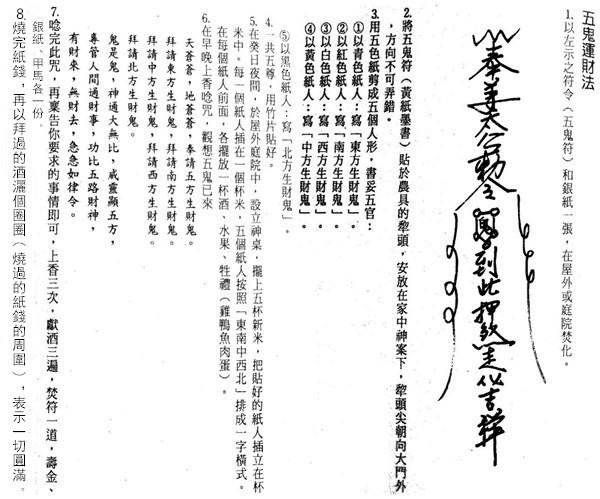 五鬼運財法
1.以左示之符令(五鬼符)和銀紙一張,在屋外或庭院焚化。
奉姜太公勅令到此押煞化吉祥
2.將五鬼符(黃紙墨書)貼於農具的犂頭,安放在家中神案下,犂頭尖朝向大門外
,方向不可弄錯。
3.用五色紙剪成五個人形,書妥五官:
①以青色紙人:寫「東方生財鬼」。
②以紅色紙人:寫「南方生財鬼」。
③以白色紙人:寫「西方生財鬼」。
④以黃色紙人:寫「中方生財鬼」。
⑤以黑色紙人:寫「北方生財鬼」。
4.一共五尊,用竹片貼好。
5.在癸日夜間,於屋外庭院中,設立神桌,擺上五杯新米,把貼好的紙人插立在杯
米中。每一個紙人插在一個杯米,五個紙人按照「東南中西北」排成一字橫式。
在每個紙人前面,各擺放一杯酒、水果、牲禮(雞鴨魚肉蛋)。
6.在早晚上香唸咒,觀想五鬼已來
天蒼蒼,地蒼蒼,奉請五方生財鬼。
拜請東方生財鬼,拜請南方生財鬼。
拜請中方生財鬼,拜請西方生財鬼。
拜請北方生財鬼。
鬼是鬼,神通大無比,威靈顯五方,
專管人間通財事,功比五路財神,
有財來,無財去,急急如律令。
7.唸完此咒,再稟告你要求的事情即可,上香三次,獻酒三遍,焚符一道,壽金、
銀紙、甲馬各一份。
8.燒完紙錢,再以拜過的酒灑個圈圈(燒過的紙錢的周圍),表示一切圓滿。